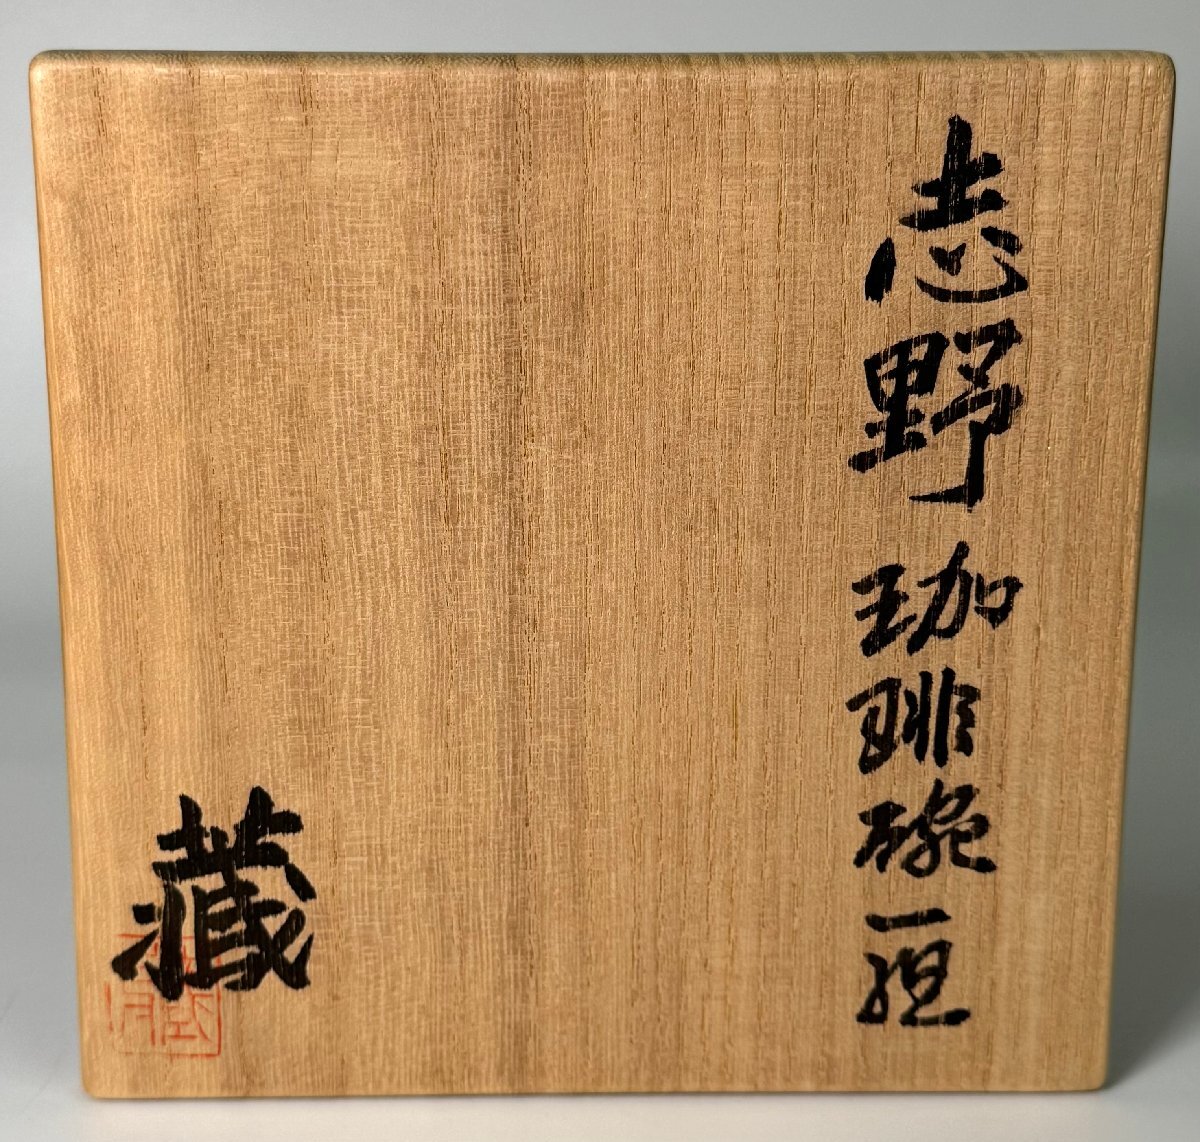 志野珈琲碗一組
藏